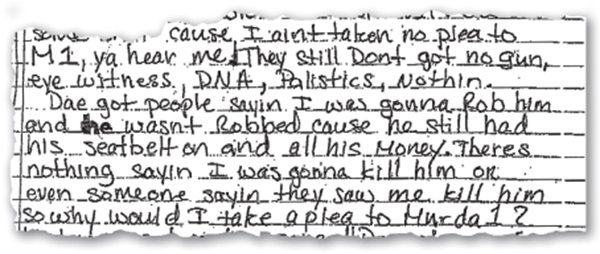 cause I aint taken no plea to
M1, ya hear me! They still Dont got no gun,
eye witness, DNA, Palistics, Nothin.
Dae got people sayin I was gonna Rob him
and he wasnt Robbed cause he still had
his seatbelt on and all his Money. Theres
nothing sayin I was gonna kill him or
even someone sayin they saw me kill him
so why would I take a plea to Murda 1?